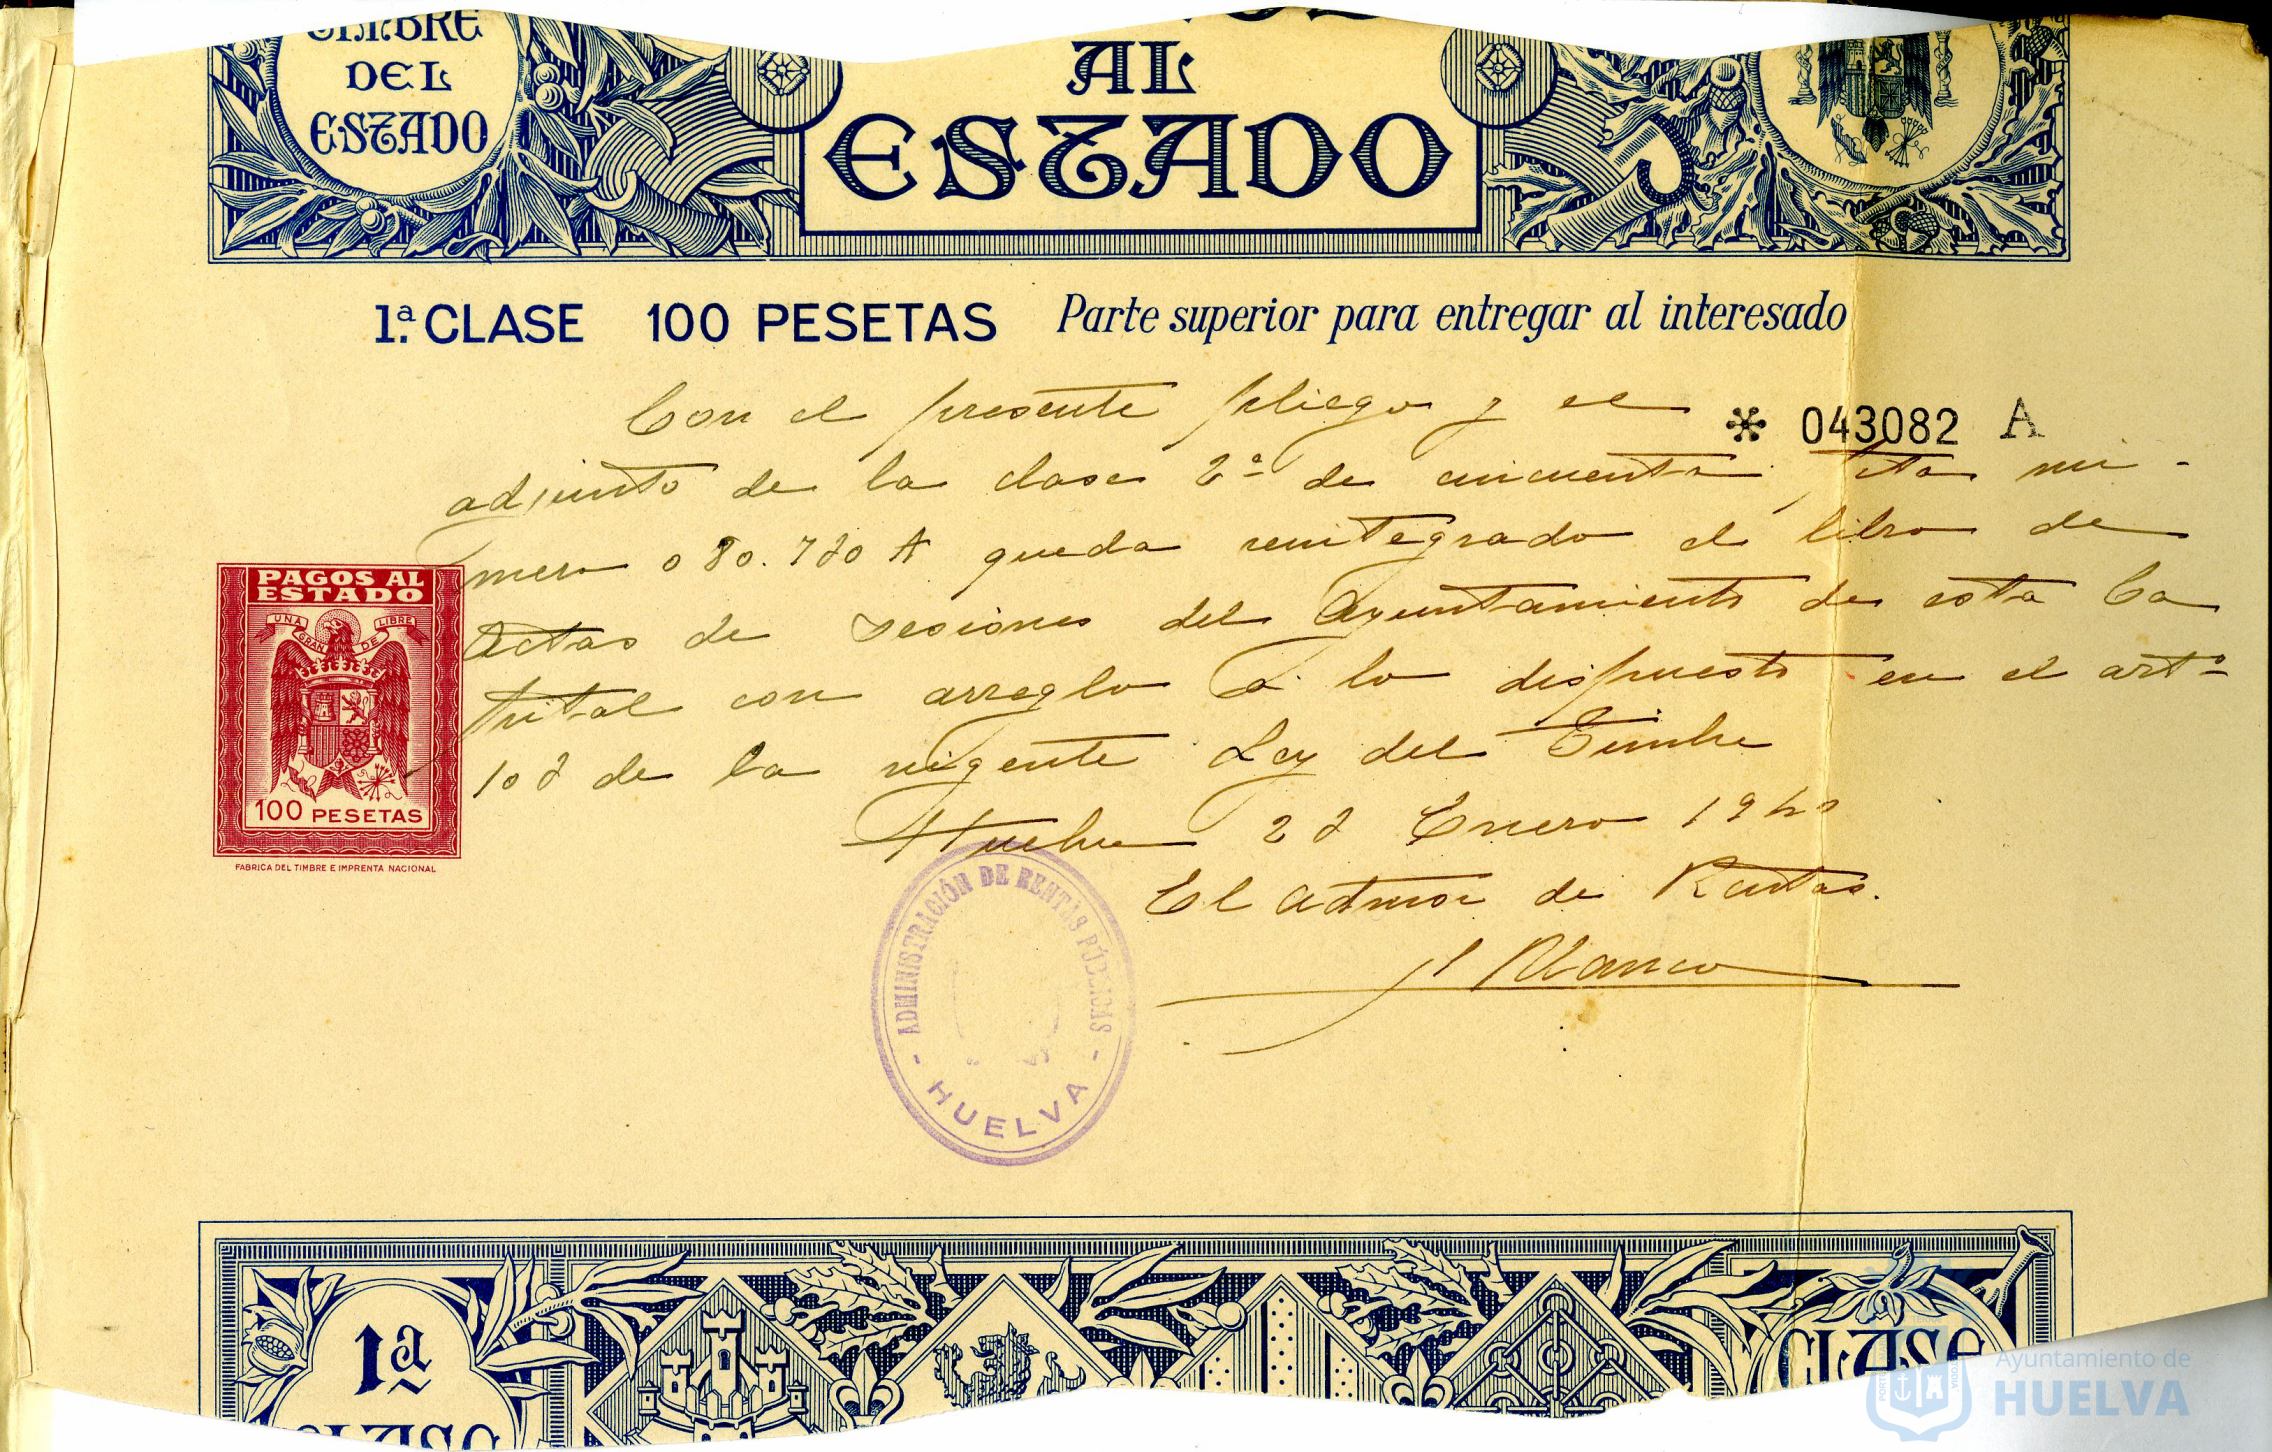 TIMBRE
DEL
ESTADO
AL
ESTADO
1ª CLASE 100 PESETAS Parte superior para entregar al interesado
* 043082 A
Con el presente pliego y el
adjunto de la clase 2ª de cincuenta ptas nú-
mero 080.720 A queda reintegrado el libro de
Actas de sesiones del Ayuntamiento de esta Ca
pital con arreglo a lo dispuesto en el artº
102 de la vigente Ley del Timbre
Huelva 22 Enero 1940
El Admor de Rentas.
Blanco
PAGOS AL
ESTADO
UNA GRANDE LIBRE
100 PESETAS
FABRICA DEL TIMBRE E IMPRENTA NACIONAL
- ADMINISTRACIÓN DE RENTAS PÚBLICAS -
HUELVA
1ª
CLASE
CLASE
Ayuntamiento de
HUELVA